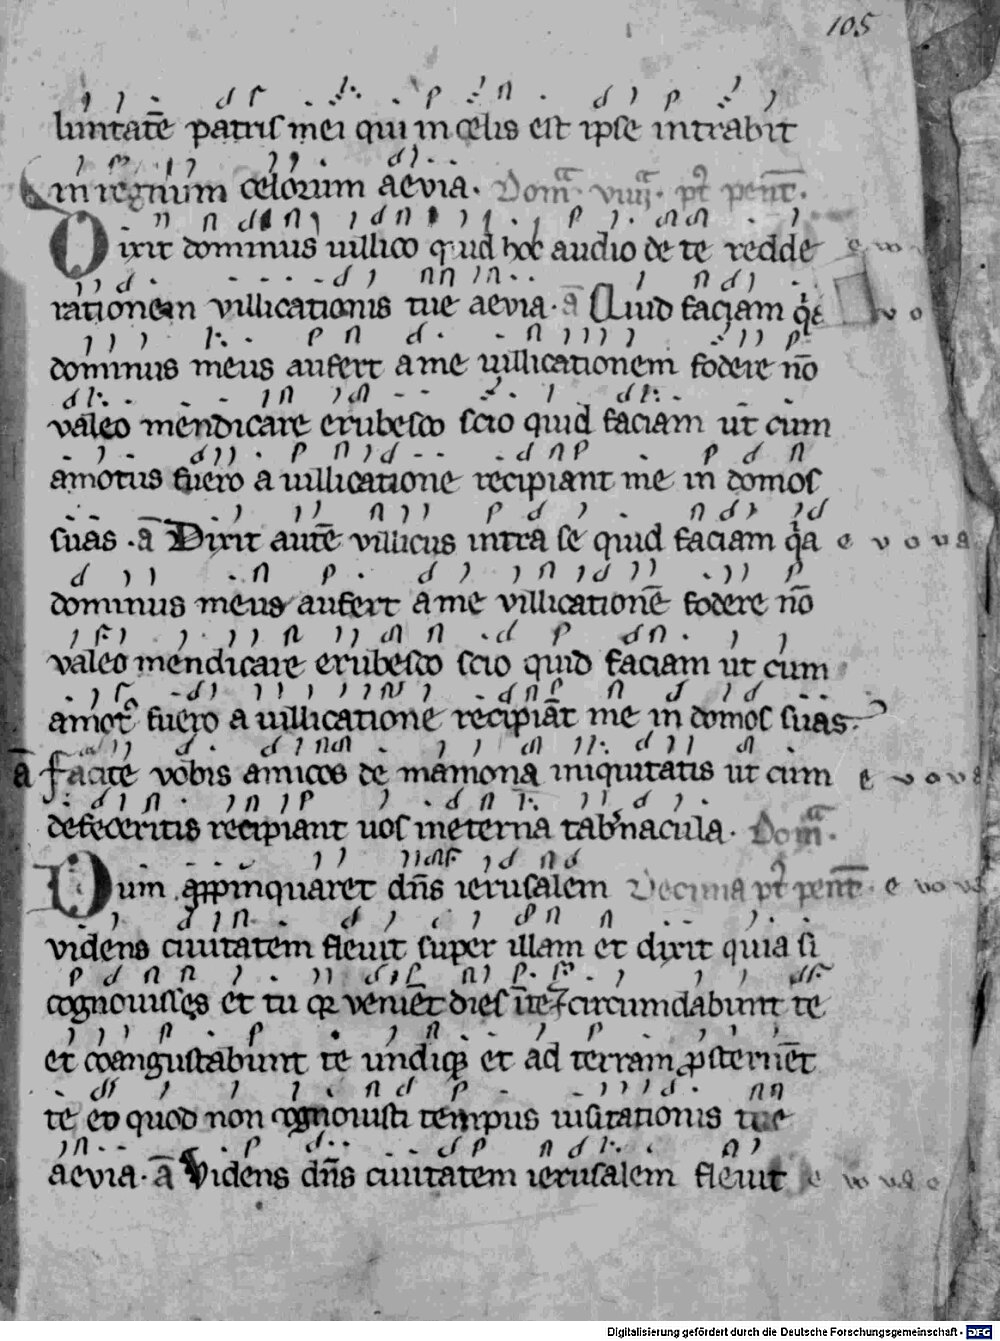 105
luntatē patris mei qui in celis est ipse intrabit
in regnum celorum aevia. Domᷓ viiij. pᵗ pent̄.
Dixit dominus uillico quid hoc audio de te redde e u o
rationem villicationis tue aevia. ā Quid faciam q̇a v o
dominus meus aufert a me uillicationem fodere nō
valeo mendicare erubesco scio quid faciam ut cum
amotus fuero a uillicatione recipiant me in domos
suas. ā Dixit autē villicus intra se quid faciam q̇a e v o v a
dominus meus aufert a me villicationē fodere nō
valeo mendicare erubesco scio quid faciam ut cum
amot᷒ fuero a uillicatione recipiāt me in domos suas.
ā facite vobis amicos de mamona iniquitatis ut cum e v o v a
defeceritis recipiant uos in eterna tab'nacula. Domᷓ.
Dum apꝓpinquaret dn̄s ierusalem Decima pᵗ pent̄. e u o v a
videns ciuitatem fleuit super illam et dixit quia si
cognouisses et tu qꝛ venient dies ī te ⁊ circumdabunt te
et coangustabunt te undiqꝫ et ad terram ꝓsternēt
te eo quod non cognouisti tempus uisitationis tue
aevia. ā Videns dn̄s ciuitatem ierusalem fleuit e u o u a e
Digitalisierung gefördert durch die Deutsche Forschungsgemeinschaft - DFG